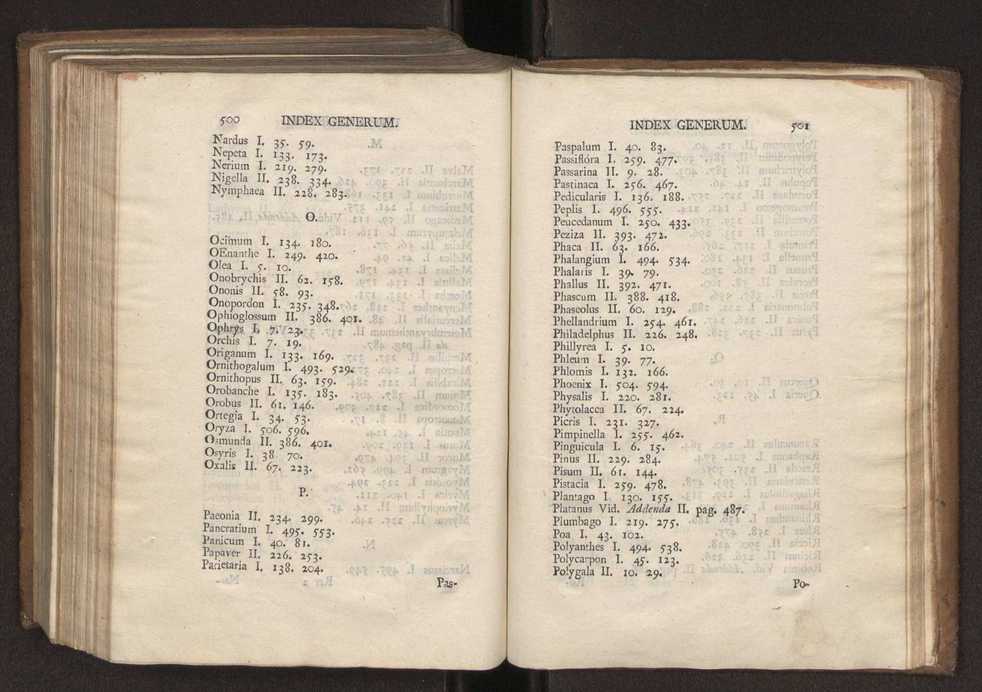 500 INDEX GENERUM.
Nardus I. 35. 59.
Nepeta I. 133. 173.
Nerium I. 219. 279.
Nigella II. 238. 334.
Nymphaea II. 228. 283.
O.
Ocimum I. 134. 180.
OEnanthe I. 249. 420.
Olea I. 5. 10.
Onobrychis II. 62. 158.
Ononis II. 58. 93.
Onopordon I. 235. 348.
Ophioglossum II. 386. 401.
Ophrys I. 7. 23.
Orchis I. 7. 19.
Origanum I. 133. 169.
Ornithogalum I. 493. 529.
Ornithopus II. 63. 159.
Orobanche I. 135. 183.
Orobus II. 61. 146.
Ortegia I. 34. 53.
Oryza I. 506. 596.
Osmunda II. 386. 401.
Osyris I. 38. 70.
Oxalis II. 67. 223.
P.
Paeonia II. 234. 299.
Pancratium I. 495. 553.
Panicum I. 40. 81.
Papaver II. 226. 253.
Parietaria I. 138. 204.
Pas-
INDEX GENERUM. 501
Paspalum I. 40. 83.
Passiflóra I. 259. 477.
Passarina II. 9. 28.
Pastinaca I. 256. 467.
Pedicularis I. 136. 188.
Peplis I. 496. 555.
Peucedanum I. 250. 433.
Peziza II. 393. 472.
Phaca II. 63. 166.
Phalangium I. 494. 534.
Phalaris I. 39. 79.
Phallus II. 392. 471.
Phascum II. 388. 418.
Phaseolus II. 60. 129.
Phellandrium I. 254. 461.
Philadelphus II. 226. 248.
Phillyrea I. 5. 10.
Phleum I. 39. 77.
Phlomis I. 132. 166.
Phoenix I. 504. 594.
Physalis I. 220. 281.
Phytolacca II. 67. 224.
Picris I. 231. 327.
Pimpinella I. 255. 462.
Pinguicula I. 6. 15.
Pinus II. 229. 284.
Pisum II. 61. 144.
Pistacia I. 259. 478.
Plantago I. 130. 155.
Platanus Vid. Addenda II. pag. 487.
Plumbago I. 219. 275.
Poa I. 43. 102.
Polyanthes I. 494. 538.
Polycarpon I. 45. 123.
Polygala II. 10. 29.
Po-